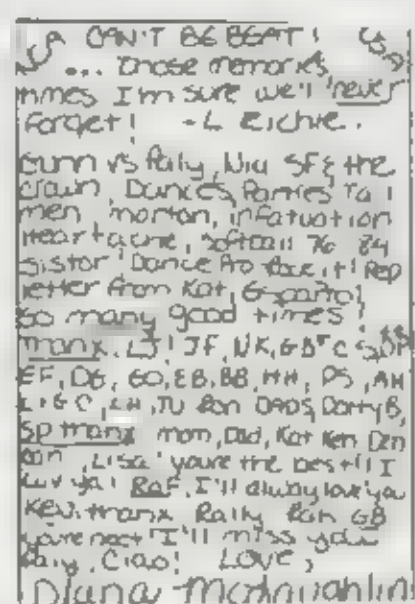 USA CAN'T BE BEAT! USA
... Those memories,
times I'm sure we'll never
forget! -L Richie.
Gunn vs Paly, Niu SF & the
clown, Dances, Parties Ta
men, morton, infatuation
Heartache, softball 76 84
sistor! Dance Pro it! Rep
letter from Kat, G-
so many good times!
Thanx, LJ! JF, NK, GB TC
EF, DB, GO, EB, BB, HH, PS, AH
L.H, TU Ron DADS, Dotty B,
Sp thanx mom, Dad, Kat Ken Den
Dan, Lisa! youre the best!! I
luv ya! RaF, I'll alway love you
Kev. thanx Rally Ron GB
youre neat I'll miss you
Paly, Ciao! LOVE,
Diana McLaughlin